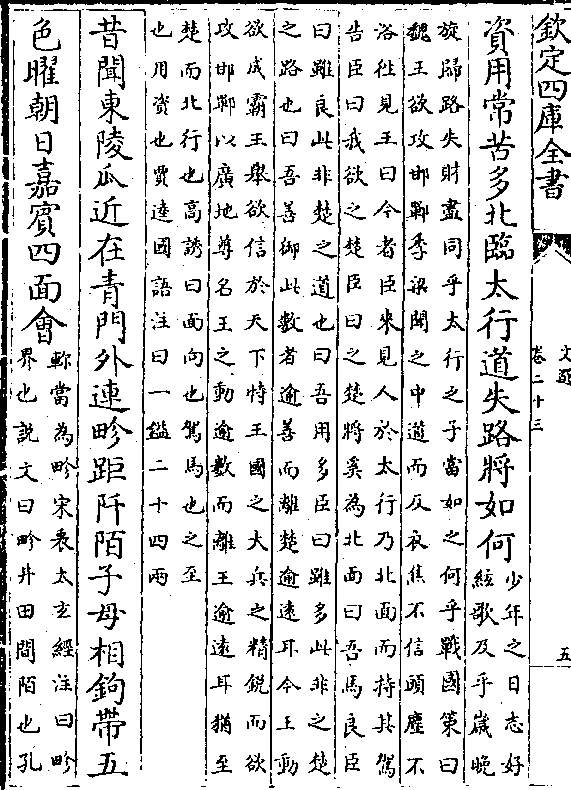 欽定四庫全書
文選
卷二十三
五
資用常苦多北臨太行道失路將如何少年之日志好
絃歌及乎歲晚
旋歸路失財盡同乎太行之子當如之何乎戰國策曰
魏王欲攻邯鄲季梁聞之中道而反衣焦不信頭塵不
浴徃見王曰今者臣來見人於太行乃北面而持其駕
告臣曰我欲之楚臣曰之楚將奚為北面曰吾馬良臣
曰雖良此非楚之道也曰吾用多臣曰雖多此非之楚
之路也曰吾善御此數者逾善而離楚逾遠耳今王動
欲成霸王舉欲信於天下恃王國之大兵之精鋭而欲
攻邯鄲以廣地尊名王之動逾數而離王逾遠耳猶至
楚而北行也高誘曰面向也駕馬也之至
也用資也賈逵國語注曰一鎰二十四兩
昔聞東陵瓜近在青門外連畛距阡陌子母相鉤帶五
色曜朝日嘉賓四面會軫當為畛宋衷太玄經注曰畛
界也説文曰畛井田間陌也孔